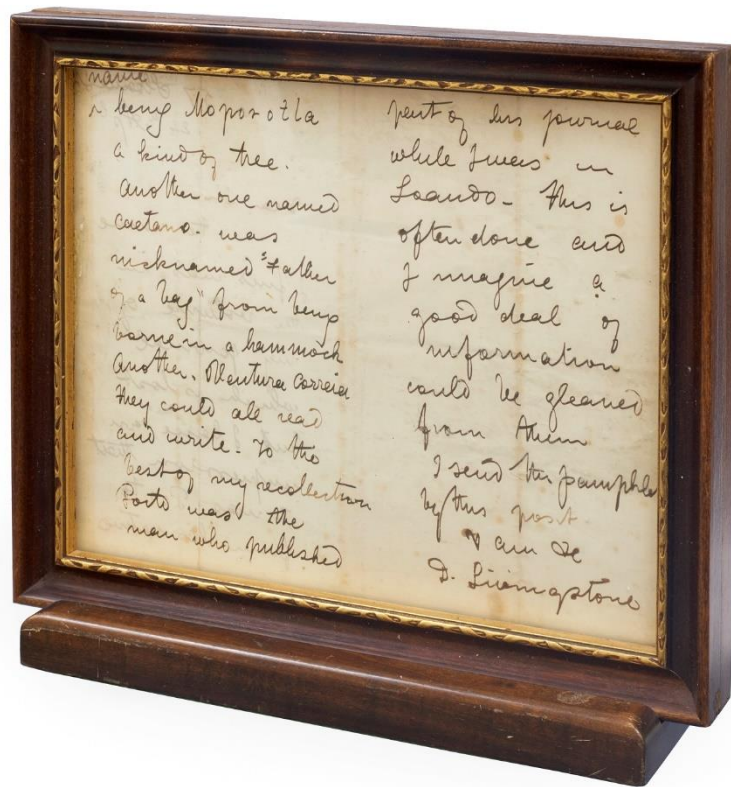 name
being Moporotla
a kind of tree.
Another one named
Caetano. was
nicknamed "Father
of a bag" from being
borne in a hammock
Another. Ventura Correia
they could all read
and write. To the
best of my recollection
Porto was the
man who published
part of his journal
while I was in
Loando - This is
often done and
I imagine a
good deal of
information
could be gleaned
from them
I send the pamphle
by this post
I am &c
D. Livingstone